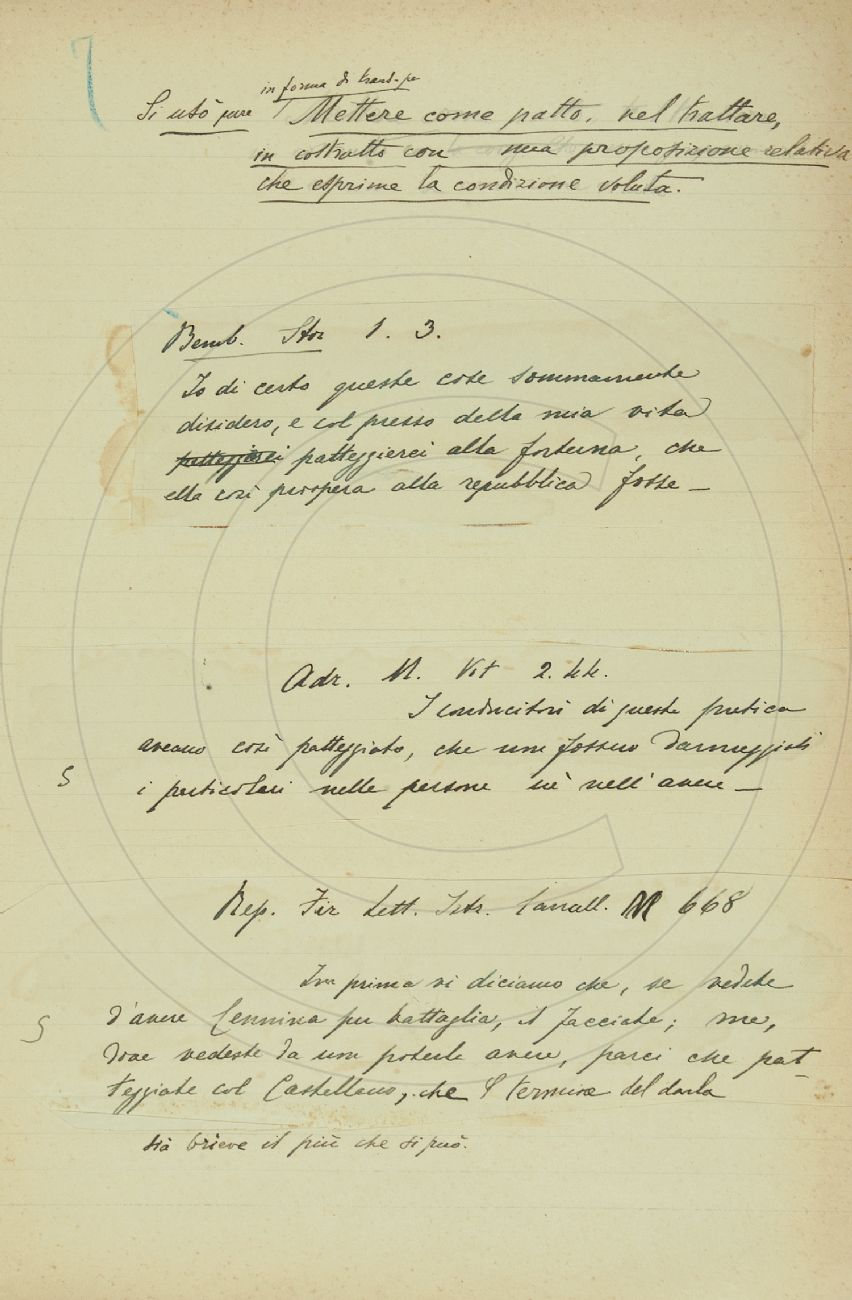 in forma di trans.
Si usò pure Mettere come patto, nel trattare,
in costrutto con una proposizione relativa
che esprime la condizione voluta.
Bemb. Stor 1. 3.
Io di certo queste cose sommamente
disidero, e col presso della mia vita
patteggierei patteggierei alla fortuna, che
ella così prospera alla repubblica fosse —
Adr. M. Vit 2. 44.
I conducitori di questa pratica
aveano così patteggiato, che non fossero danneggiati
i particolari nelle persone nè nell'avere —
S
Rep. Fir Lett. Istr. Cavall. M 668
Im prima vi diciamo che, se vedete
d'avere Cennina per battaglia, il facciate; ma,
S
dove vedeste da non poterla avere, parci che pat-
teggiate col Castellano, che l termine del darla
sia brieve il più che si può.